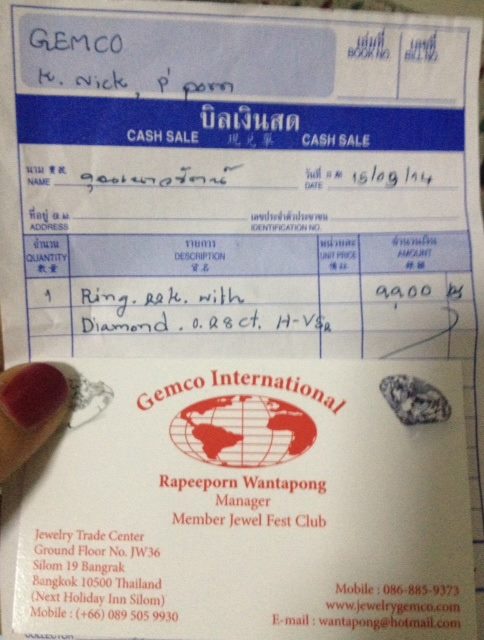 GEMCO
K. Nick, P' porn
เล่มที่ BOOK NO.
เลขที่ BILL NO.
บิลเงินสด
CASH SALE 現兌單 CASH SALE
นาม NAME
วันที่ DATE 15/09/14
ที่อยู่ ADDRESS
เลขประจำตัวประชาชน IDENTIFICATION NO.
จำนวน รายการ หน่วยละ จำนวนเงิน
QUANTITY DESCRIPTION UNIT PRICE AMOUNT
數量 貨名
1 Ring. with 9,900
Diamond. 0.28ct. H-VS2
Gemco International
Rapeeporn Wantapong
Manager
Member Jewel Fest Club
Jewelry Trade Center
Ground Floor No. JW36
Silom 19 Bangrak
Bangkok 10500 Thailand
(Next Holiday Inn Silom)
Mobile : (+66) 089 505 9930
Mobile : 086-885-9373
www.jewelrygemco.com
E-mail : wantapong@hotmail.com
COLLECTOR